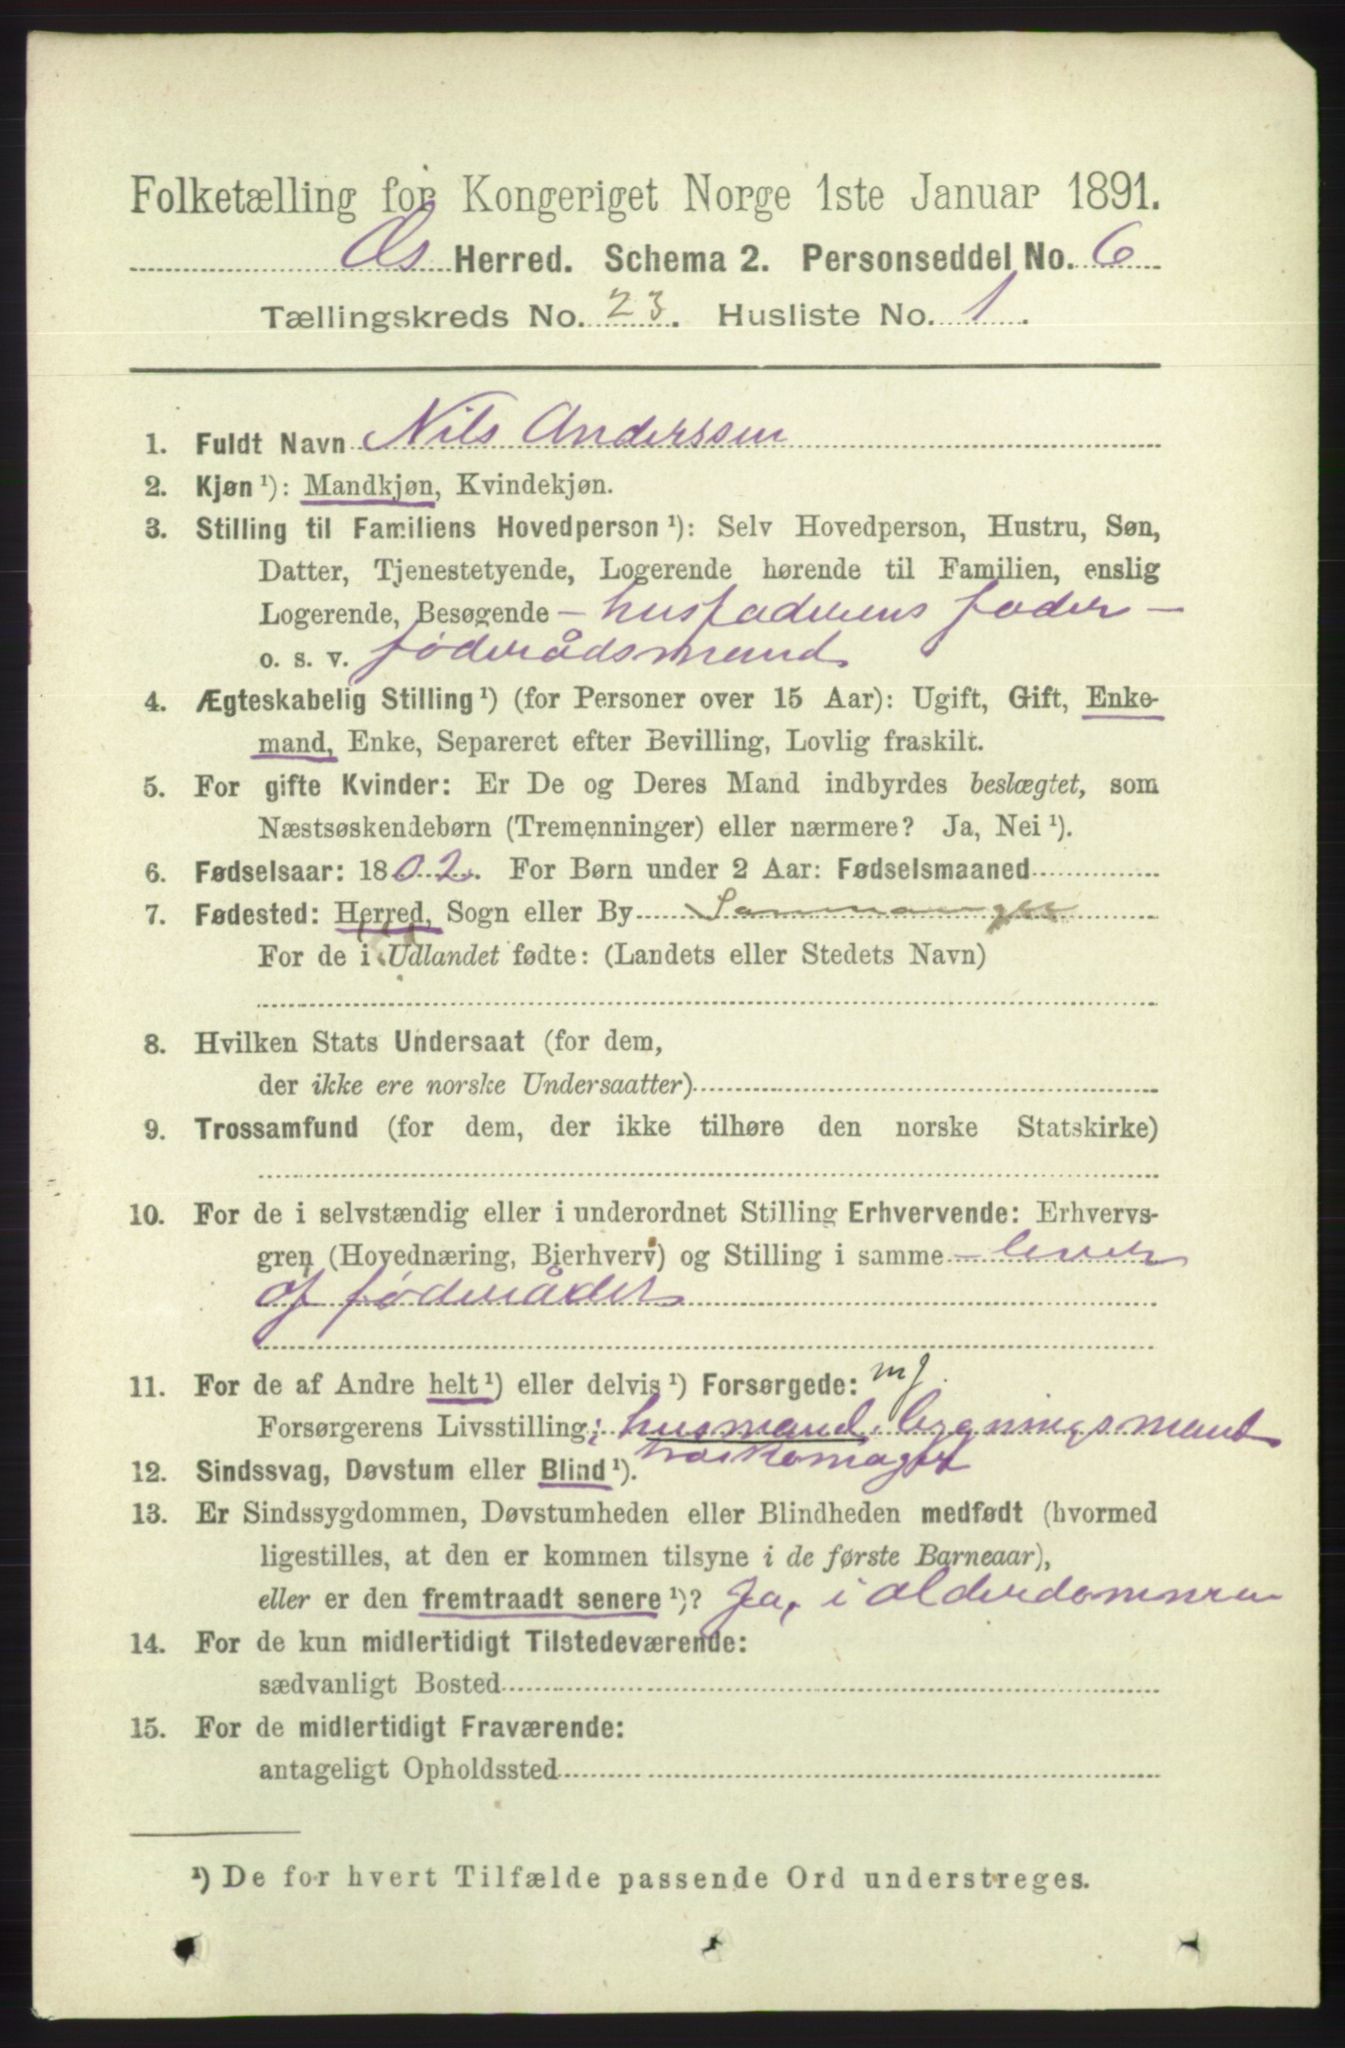 Folketælling for Kongeriget Norge 1ste Januar 1891.
Os Herred. Schema 2. Personseddel No. 6
Tællingskreds No. 23. Husliste No. 1.
1. Fuldt Navn Nils Anderssen
2. Kjøn ¹): Mandkjøn, Kvindekjøn.
3. Stilling til Familiens Hovedperson ¹): Selv Hovedperson, Hustru, Søn,
Datter, Tjenestetyende, Logerende hørende til Familien, enslig
Logerende, Besøgende – husfaderens fader –
o. s. v. føderådsmand
4. Ægteskabelig Stilling ¹) (for Personer over 15 Aar): Ugift, Gift, Enke-
mand, Enke, Separeret efter Bevilling, Lovlig fraskilt.
5. For gifte Kvinder: Er De og Deres Mand indbyrdes beslægtet, som
Næstsøskendebørn (Tremenninger) eller nærmere? Ja, Nei ¹).
6. Fødselsaar: 1802. For Børn under 2 Aar: Fødselsmaaned
7. Fødested: Herred, Sogn eller By Sammanger
For de i Udlandet fødte: (Landets eller Stedets Navn)
8. Hvilken Stats Undersaat (for dem,
der ikke ere norske Undersaatter)
9. Trossamfund (for dem, der ikke tilhøre den norske Statskirke)
10. For de i selvstændig eller i underordnet Stilling Erhvervende: Erhvervs-
gren (Hovednæring, Bierhverv) og Stilling i samme – lever
af føderådet
11. For de af Andre helt ¹) eller delvis ¹) Forsørgede: mf.
Forsørgerens Livsstilling; husmand,
12. Sindssvag, Døvstum eller Blind ¹).
13. Er Sindssygdommen, Døvstumheden eller Blindheden medfødt (hvormed
ligestilles, at den er kommen tilsyne i de første Barneaar),
eller er den fremtraadt senere ¹)? Ja, i alderdommen
14. For de kun midlertidigt Tilstedeværende:
sædvanligt Bosted
15. For de midlertidigt Fraværende:
antageligt Opholdssted
¹) De for hvert Tilfælde passende Ord understreges.